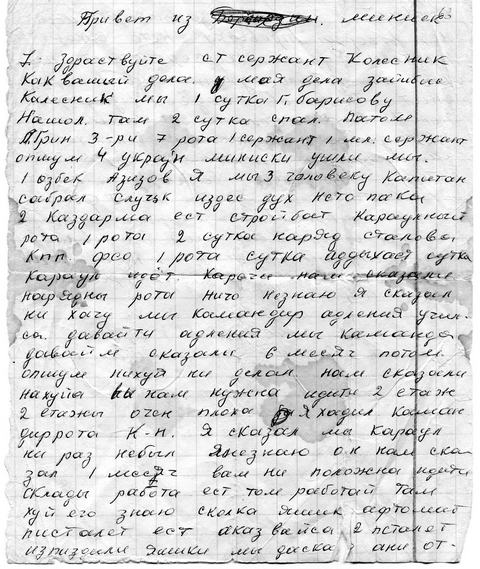 Привет из минск
7. здраствуйте ст сержант Колесник
Как вашый дела. у мая дела зайибис
Калесник мы 1 сутка Г. барисову
Нашол. там 2 сутка спал. Патом
3-ри 7 рота 1 сержант 1 мл. сержант
опшум 4 украйн миниски ушли мы.
1 озбек Азизов я мы 3 человеку Капитан
сабрал случък издес дух нето паки
2 Каздарма ест стройбат Караулный
рота 1 рота 2 сутка наряд сталовы
Кпп фсо 1 рота сутка аддыхает сутка
Караул идёт. нам сказали
нарядны рота ничо незнаю я сказал
ни хачу мы Камандир адления
са. давайти адления мы Каманда
давайм сказали 6 месяч потом
опшум нихуя ни делам. нам сказали
нахуйа вы нам нужна идити 2 етаж
2 етажны очен плоха я хадил Каман
дир рота К-н. Я сказал мы Караул
ни раз небыл янезнаю он нам ска
зал 1 месяч вам ни положна идити
склады работа ест том работай там
хуй его знаю сколка яшик афтомат
писталет ест аказвайса 2 псталет
изпиздили яшки мы даска ани от-